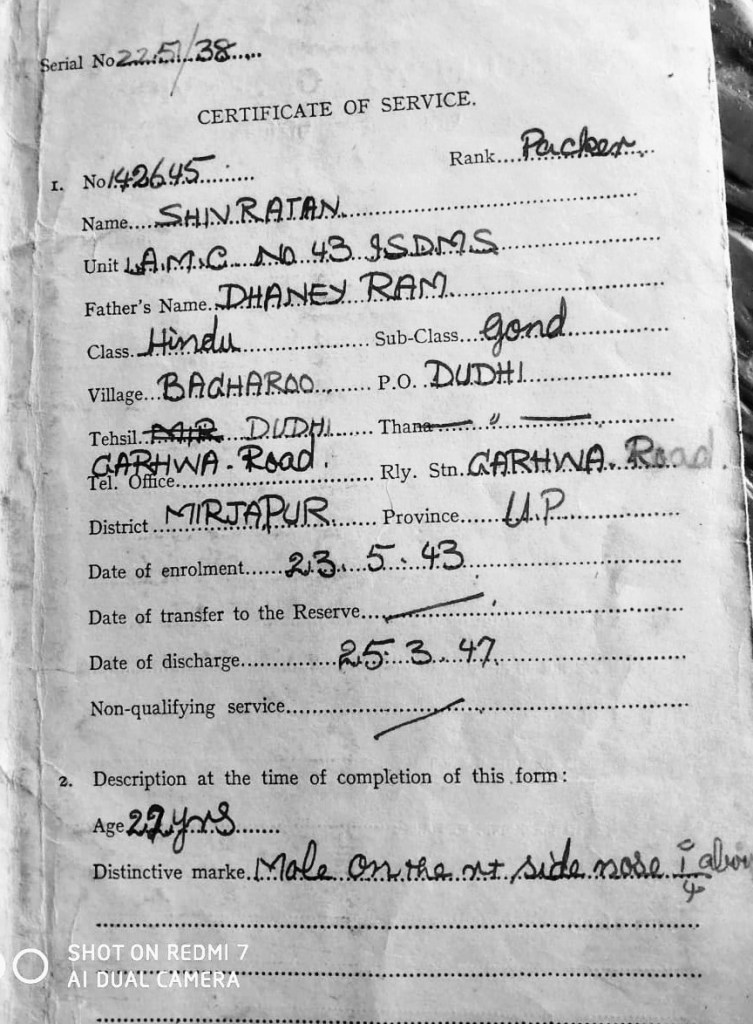 Serial No 2251/38
CERTIFICATE OF SERVICE.
1. No 142645 Rank Packer
Name SHIV RATAN
Unit I.A.M.C. No 43 ISDMS
Father's Name DHANEY RAM
Class Hindu Sub-Class Gond
Village BAGHAROO P.O. DUDHI
Tehsil DUDHI Thana "
GARHWA. Road.
Tel. Office Rly. Stn. GARHWA. Road.
District MIRJAPUR Province U.P
Date of enrolment 23. 5. 43
Date of transfer to the Reserve
Date of discharge 25. 3. 47
Non-qualifying service
2. Description at the time of completion of this form:
Age 27 yrs
Distinctive marke. Mole on the rt side nose
SHOT ON REDMI 7
AI DUAL CAMERA